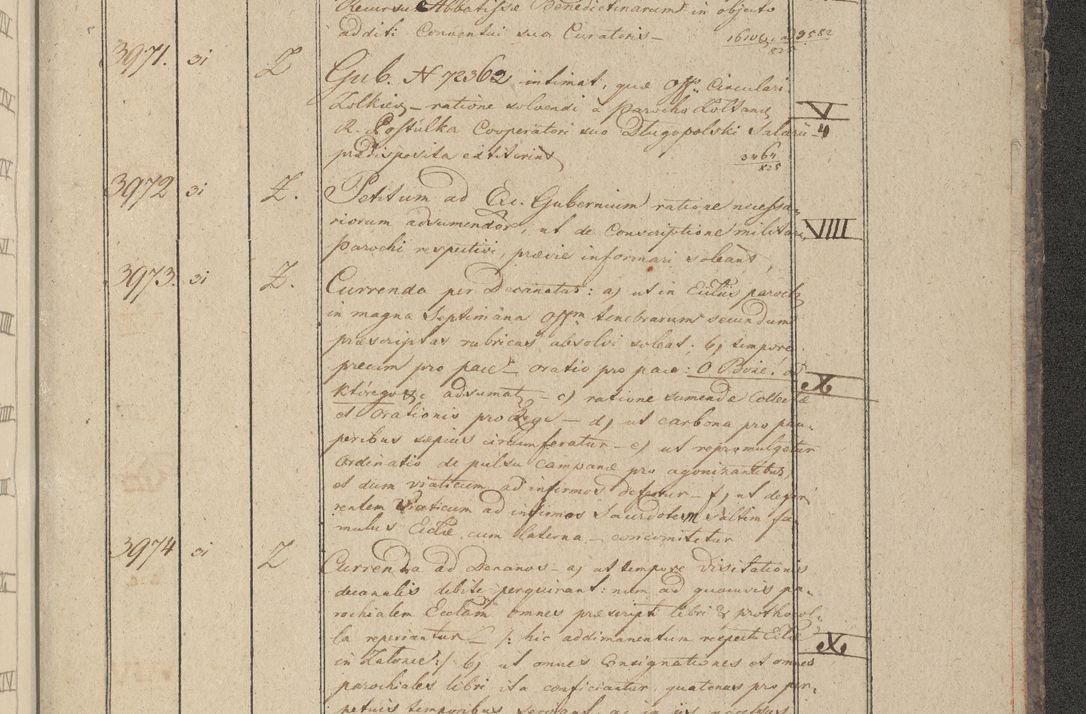 Recursu Abbatissæ Benedictinarum in objecto
additi Conventui suo Curatoris –
3971. 31 Z Gub. N 72362 intimat, quæ Offm Circulari V
Zolkiev – ratione solvendi a Parocho Zoltance 4
R. Postulka Cooperatori suo Dlugopolski Salarii
prædisposita extiterint 3464
825
3972 31 Z. Petitum ad Ex. Gubernium ratione necessa-
riorum adsumendor, ut de Conscriptione militari VIIII
Parochi respectivi, prævie informari soleant
3973. 31 Z. Currenda per Decanatus: a) ut in Eccliis paroch
in magna Septimana Offm tenebrarum secundum
præscriptas rubricas absolvi soleat, b) tempore
precum pro pace – oratio pro pace: O Boże! od X
którego &c adsumat – c) ratione sumendæ Collectæ
et Orationis pro Rege – d) ut carbona pro pau-
peribus sæpius circumferatur – e) ut repromulgetur
Ordinatio de pulsu campanæ pro agonizantibus
et dum viaticum ad infirmos defertur – f) ut defer-
rentem Viaticum ad infirmos Sacerdotem saltim fa-
mulus Eccliæ cum laterna – concomitetur
3974 31 Z Currenda ad Decanos – a) ut tempore visitationis
decanalis debite perquirant: num ad quamvis pa-
rochialem Ecclam omnes præscripti libri & prothocol-
la reperiantur – /: hic addimanentum respectu Eccliæ X
in Zatonie :/ b) ut omnes Consignationes et omnes
parochiales libri ita conficiantur, quatenus pro per-
petuis temporibus